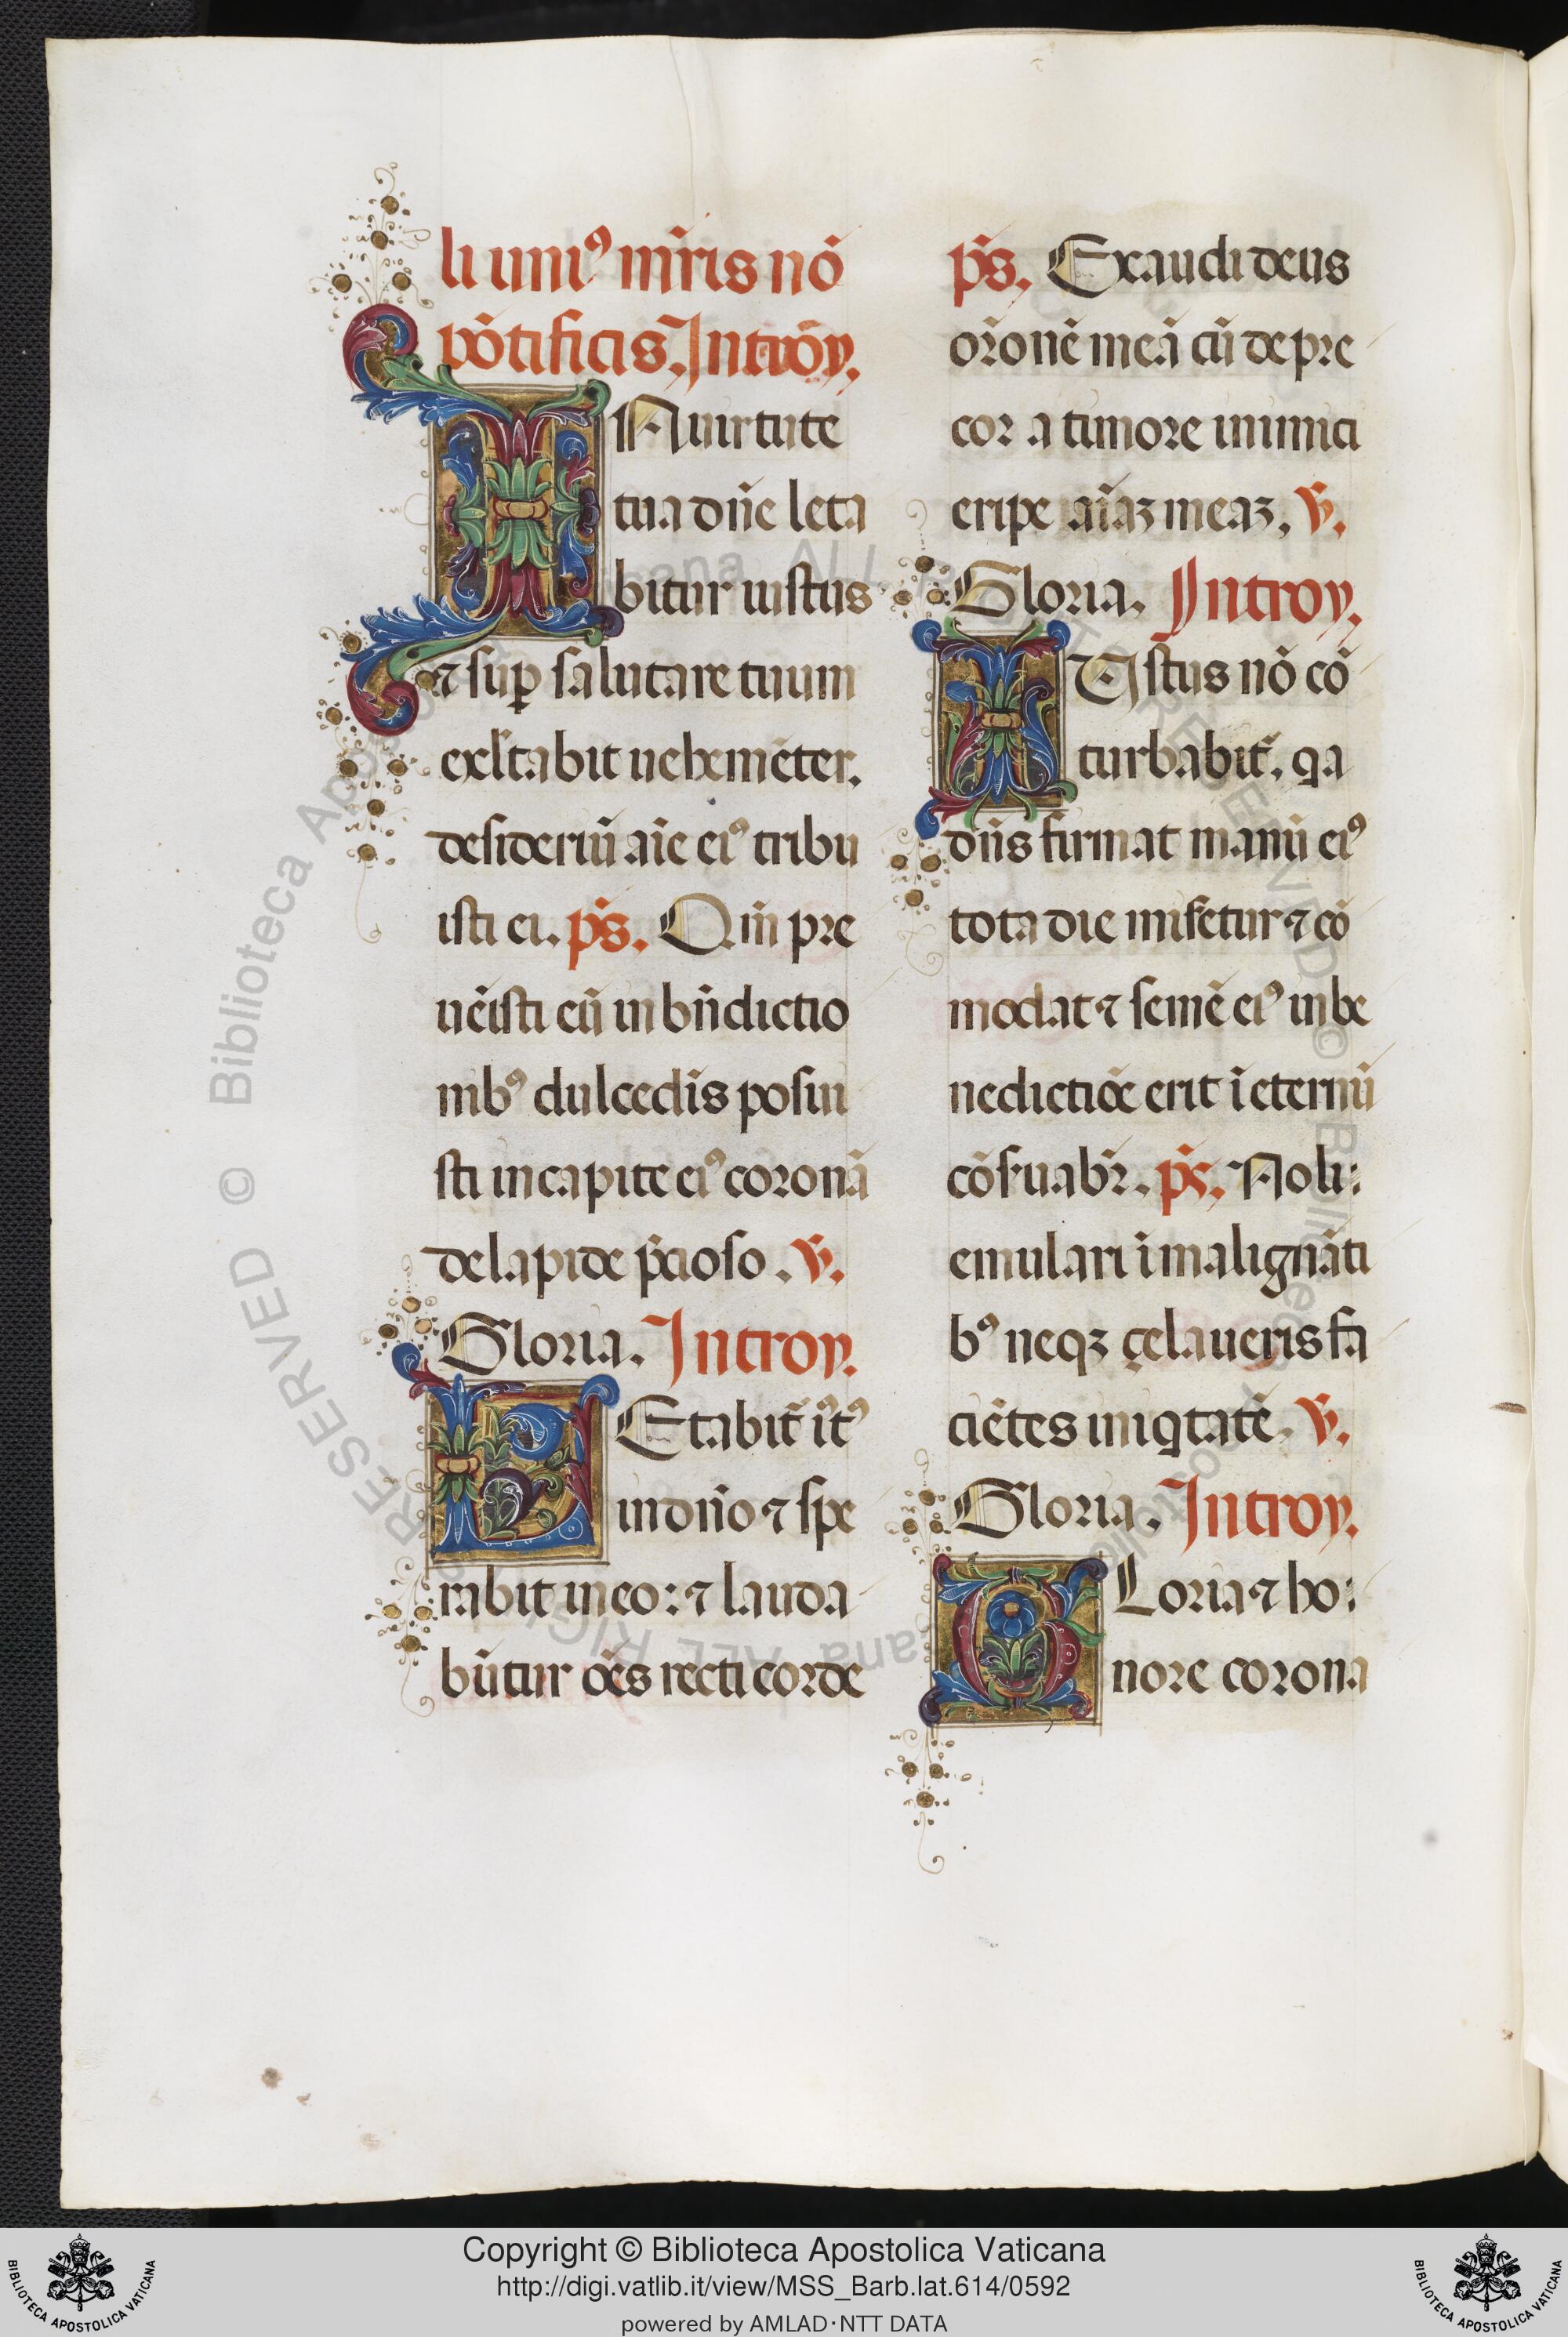 li uni⁹ mr̃is nõ
põtificis. Introy.
IN uirtute
tua dñe leta
bitur iustus
⁊ suꝑ salutare tuum
exl̃tabit uehemẽter.
desideriũ aĩe ei⁹ tribu
isti ei. pš. Qm̃ pre
uẽisti eũ in bñdictio
nib⁹ dulcedĩs posui
sti in capite ei⁹ coronã
de lapide p̃cioso. ℣.
Gloria. Introy.
LEtabit᷑ iꝰt⁹
in dño ⁊ spe
rabit in eo: ⁊ lauda
bũtur oẽs recti corde
pš. Exaudi deus
or̃onẽ meã cũ depre
cor a timore inimici
eripe aĩaꝫ meaꝫ. ℣.
Gloria. Introy.
IUstus nõ cõ
turbabit᷑. qa
dñs firmat manũ ei⁹
tota die mis̃etur ⁊ cõ
modat ⁊ semẽ ei⁹ in be
nedictiõe erit ĩ eternũ
cõs̃uabr̃. pš. Noli
emulari ĩ malignãti
b⁹ neqꝫ çelaueris fa
ciẽtes iniqtatẽ. ℣.
Gloria. Introy.
GLoria ⁊ ho
nore corona
Copyright © Biblioteca Apostolica Vaticana
http://digi.vatlib.it/view/MSS_Barb.lat.614/0592
powered by AMLAD·NTT DATA
BIBLIOTECA APOSTOLICA VATICANA
BIBLIOTECA APOSTOLICA VATICANA